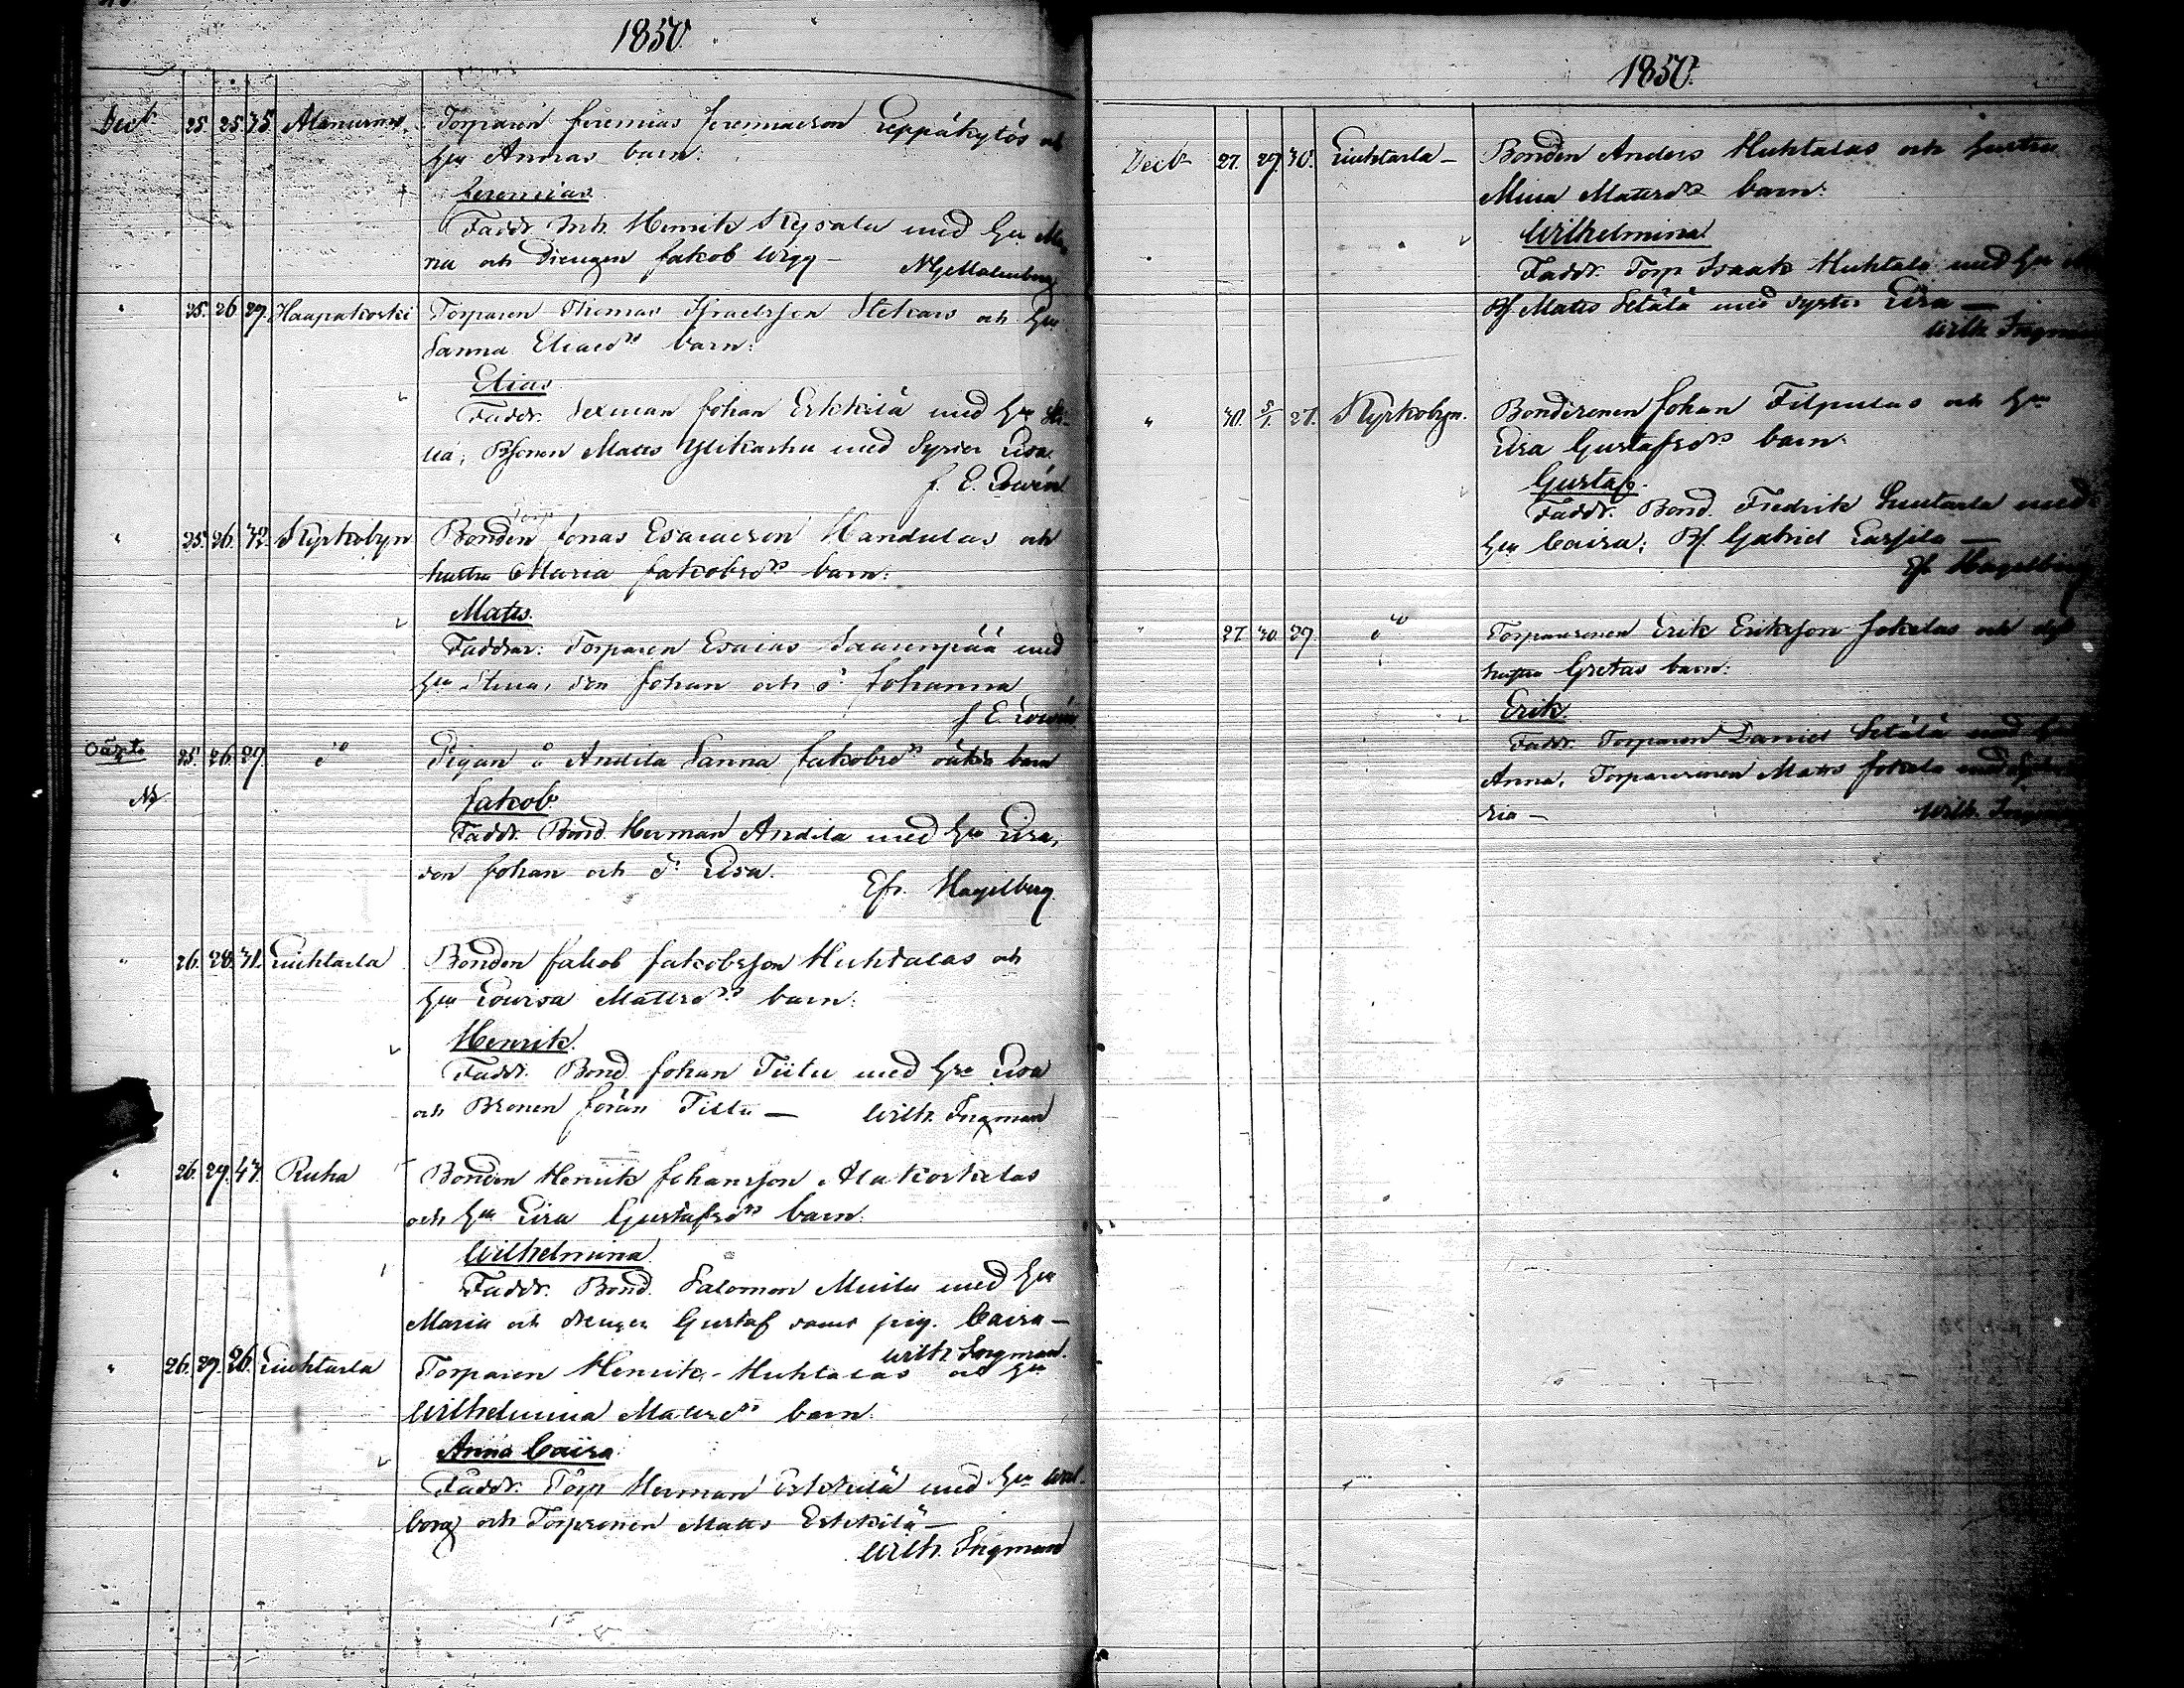 1850.
Decb. 25. 25. 35 Alanurmo. Torparen Jeremias Jeremiaeson Leppäkytös och
hu Annas barn:
Jeremias.
Faddr. Inh. Henrik med hu
na och Drengen Jakob Wigg — Malmberg
" 25. 26. 29. Haapakoski Torparen Thomas Israelsson och hu
Sanna Eliaed:r barn:
Elias
Faddr. Sexman Johan Erkkilä med hu
na; Bsonen Matts Ylikarhu med Syster Lisa
J. E. Lowén
Torp
" 25. 26. 32. Kyrkobyn Bonden Jonas Esaiaeson Mandulas och
hustru Maria Jakobsd:r barn:
Matts.
Faddrar: Torparen Esaias Saarenpää med
hu Stina, son Johan och d: Johanna
J. E. Lowén
Oägte 25. 26. 29. do Pigan å Andila Sanna Jakobsd:r oäkta barn
N3
Jakob.
Faddr. Bond. Herman Andila med hu Lisa,
son Johan och d: Lisa.
Efr. Hagelberg.
" 26. 28. 31. Liuhtarla Bonden Jakob Jakobsson Huhtalas och
hu Lovisa Mattsd:r barn:
Henrik.
Faddr. Bond. Johan Tiitu med hu Lisa
och Bsonen Jöran Tiitu — Wilh. Ingman
" 26. 29. 43. Ruha Bonden Henrik Johansson Alakoskelas
och hu Lisa Gustafsd:r barn:
Wilhelmina
Faddr. Bond. Salomon Muilu med hu
Maria och drengen Gustaf samt pig. Caisa —
Wilh. Ingman.
" 26. 29. 26. Liuhtarla Torparen Henrik Huhtalas och hu
Wilhelmina Mattsd:r barn:
Anna Caisa
Faddr. Torp Herman Erkkilä med hu Wal-
borg och Torpsonen Matts Erkkilä —
Wilh. Ingman
1850.
Decb. 27. 29. 30. Liuhtarla — Bonden Anders Huhtalas och hustru
Mina Mattsd:r barn:
Wilhelmina
Faddr. Torp Isaak Huhtala med hu
Bs Matts Setälä med syster Lisa —
Wilh. Ingman
" 30. 5/1. 27. Kyrkobyn. Bondesonen Johan Filpulas och hu
Lisa Gustafsd:r barn:
Gustaf.
Faddr. Bond. Fredrik Luutarla med
hu Caisa; Bs. Gabriel Lassila —
Ef. Hagelberg
" 27. 30. 29. do Torparesonen Erik Eriksson Jokelas och
hustru Gretas barn:
Erik.
Faddr. Torparen Daniel Setälä med hu
Anna, Torparesonen Matts Jokela med
ria —
Wilh. Ingman